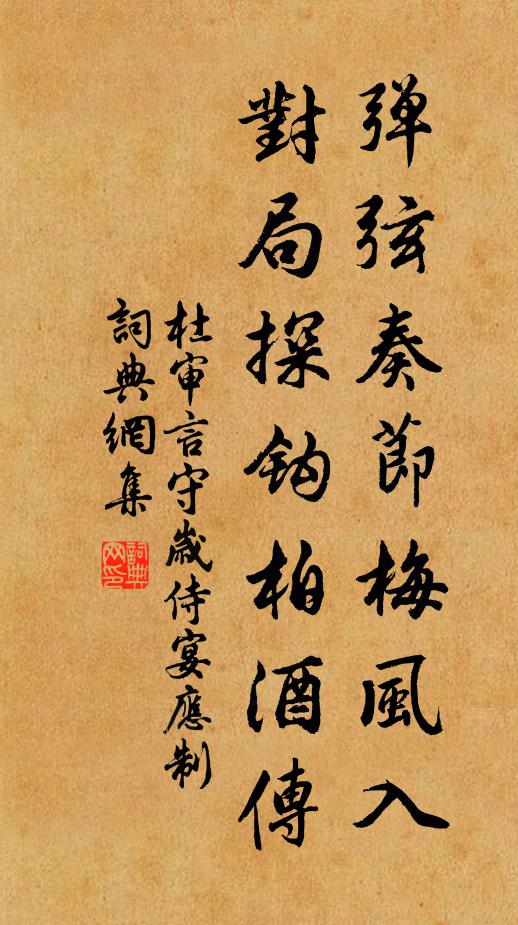 弹弦奏節梅風入
對局探鈎柏酒傳
杜审言守歲侍宴應制
詞典網集
詞典网印